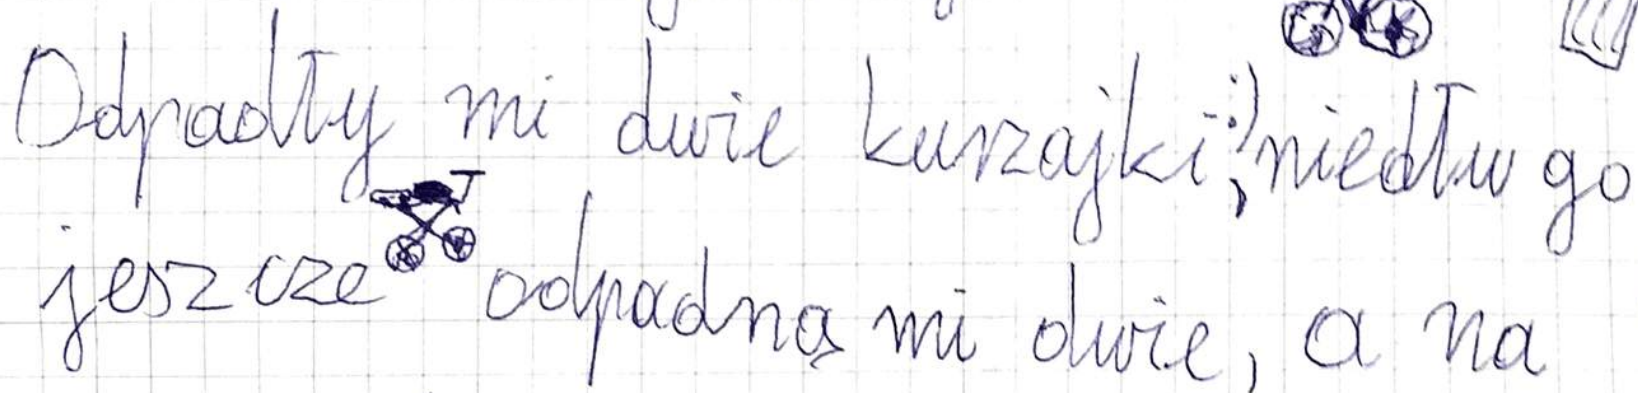 Odpadły mi dwie kurzajki :), niedługo
jeszcze odpadną mi dwie, a na